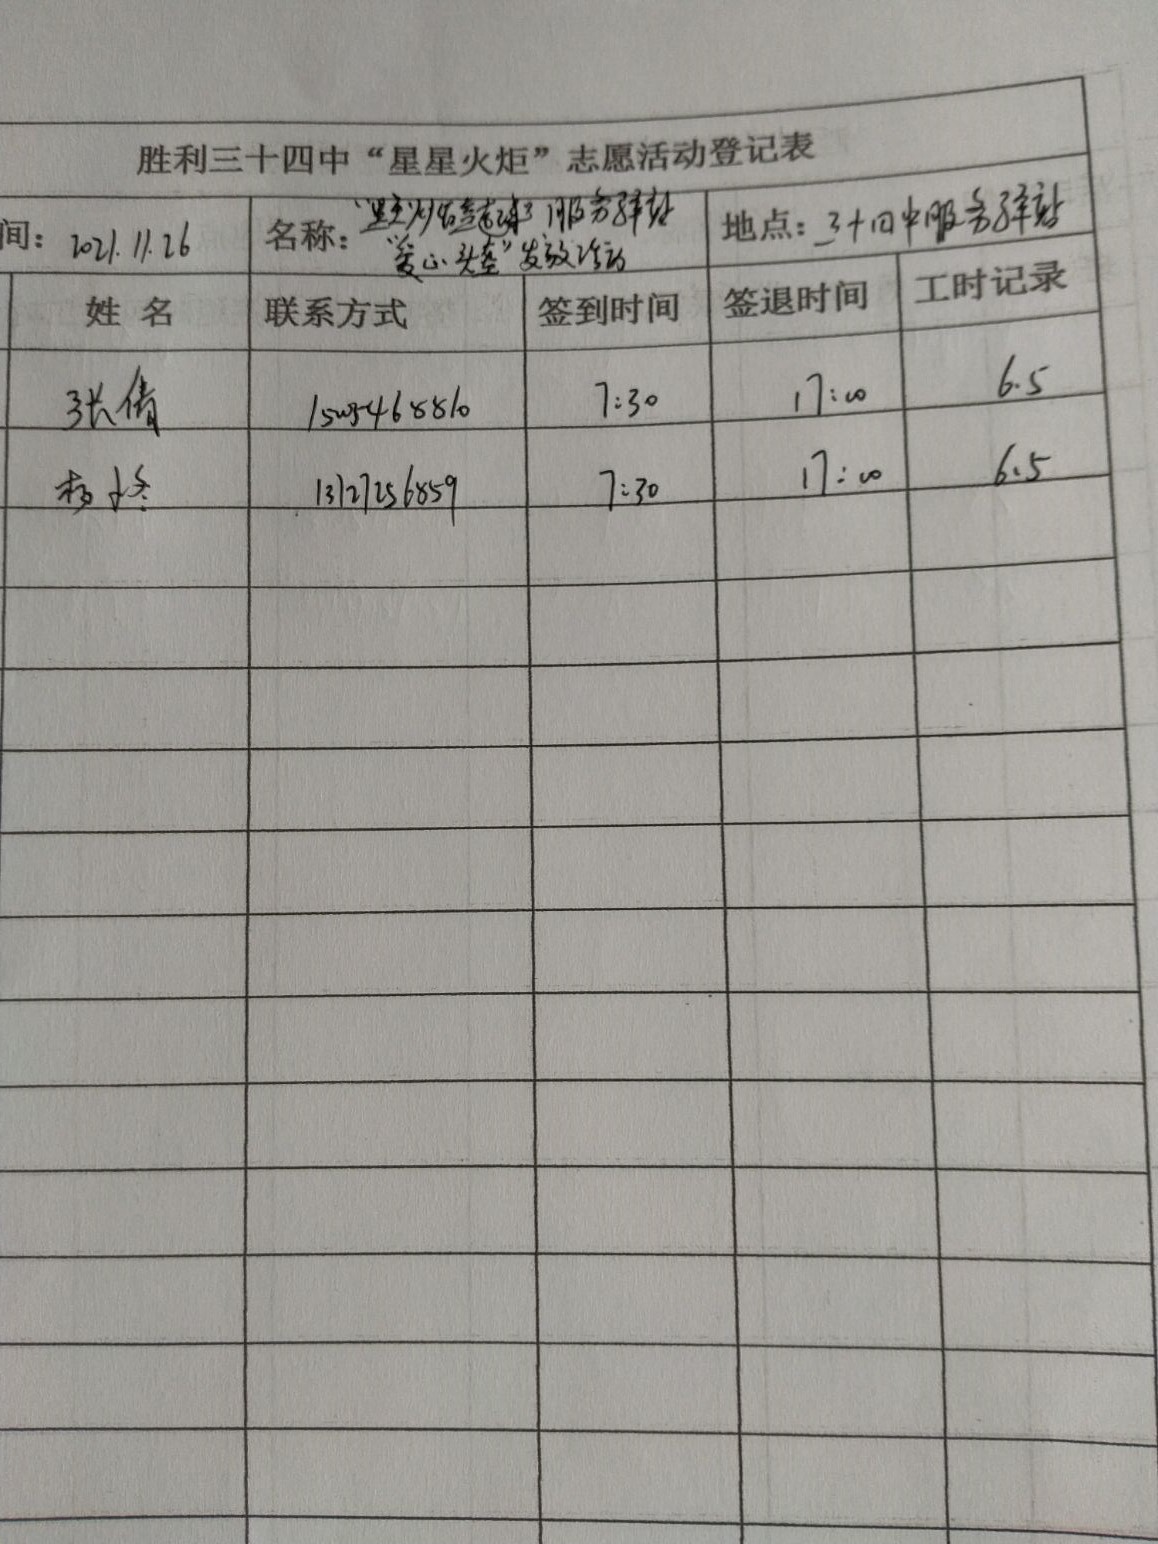 胜利三十四中“星星火炬”志愿活动登记表
间: 2021.11.26 名称: 服务驿站 地点: 三十四中服务驿站
“爱心头盔”发放活动
姓名 联系方式 签到时间 签退时间 工时记录
张倩 7:30 17:00 6.5
杨 13127256859 7:30 17:00 6.5